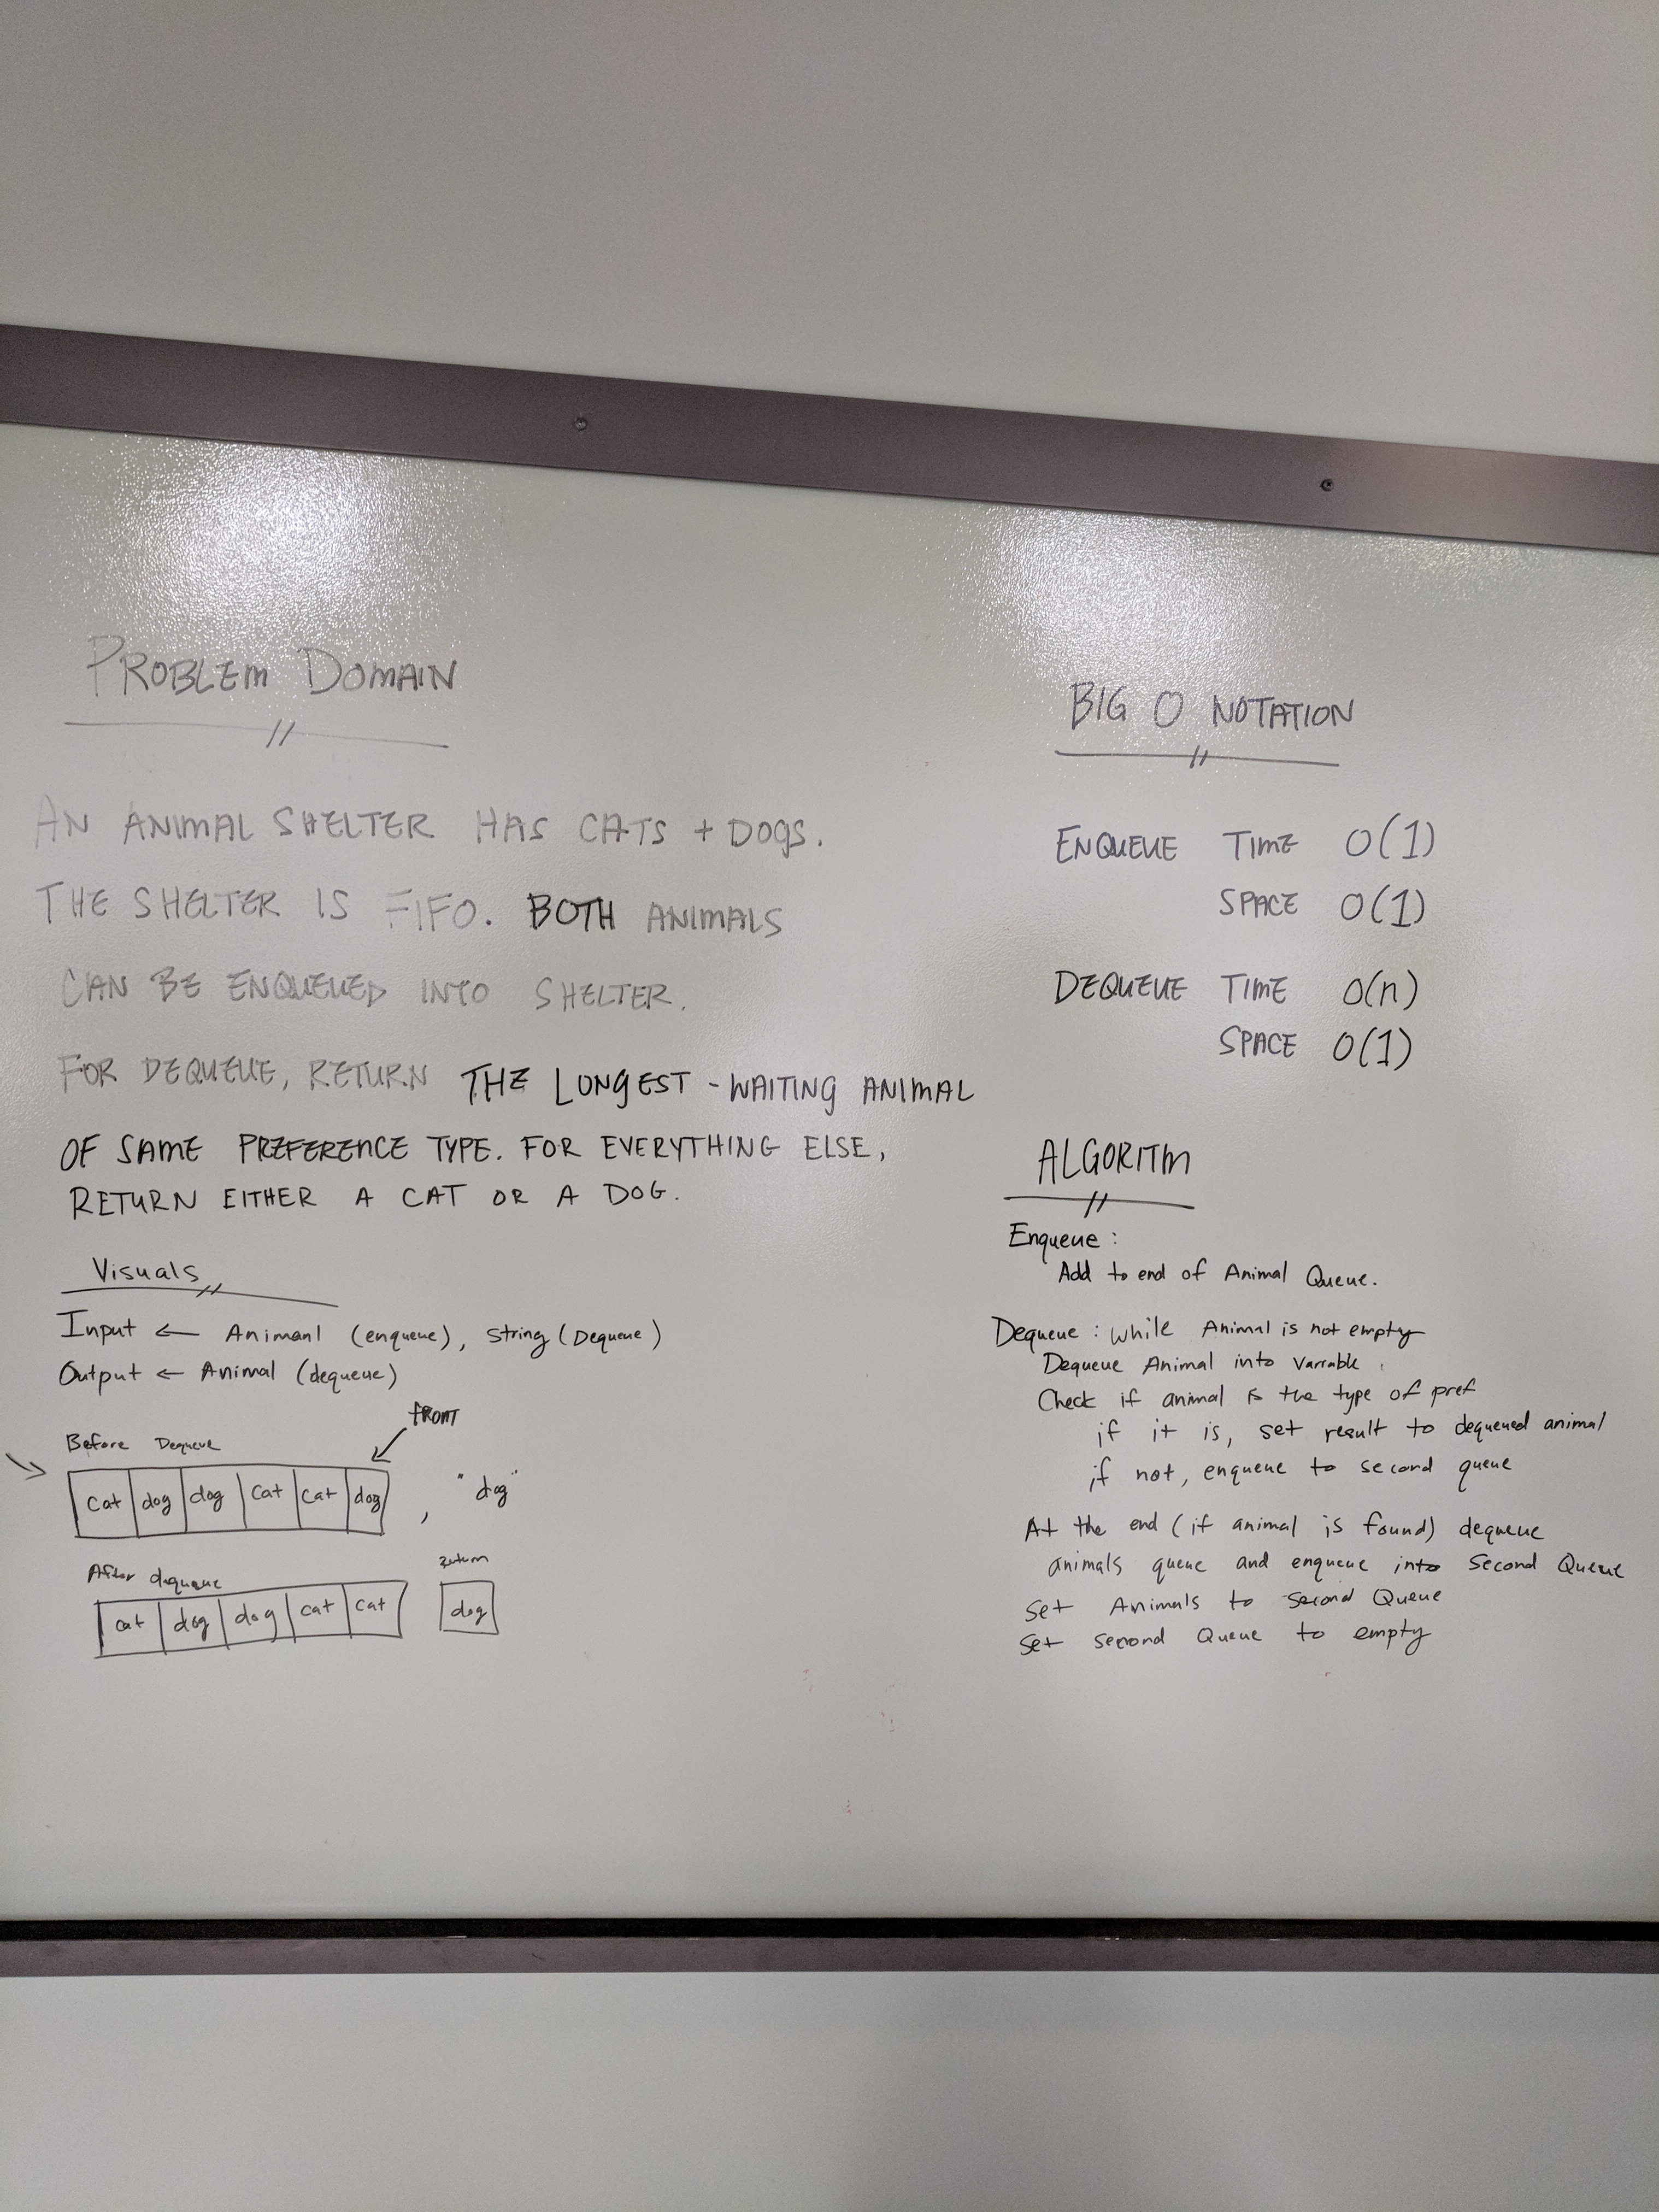 PROBLEM DOMAIN
AN ANIMAL SHELTER HAS CATS + DOGS.
THE SHELTER IS FIFO. BOTH ANIMALS
CAN BE ENQUEUED INTO SHELTER.
FOR DEQUEUE, RETURN THE LONGEST - WAITING ANIMAL
OF SAME PREFERENCE TYPE. FOR EVERYTHING ELSE,
RETURN EITHER A CAT OR A DOG.
Visuals
Input ← Animanl (enqueue), string (Dequeue)
Output ← Animal (dequeue)
FRONT
Before Dequeue
cat dog dog cat cat dog , "dog"
After dequeue return
cat dog dog cat cat dog
BIG O NOTATION
ENQUEUE TIME O(1)
SPACE O(1)
DEQUEUE TIME O(n)
SPACE O(1)
ALGORITM
Enqueue :
Add to end of Animal Queue.
Dequeue : while Animal is not empty
Dequeue Animal into variable .
Check if animal is the type of pref
if it is, set result to dequeued animal
if not, enqueue to second queue
At the end (if animal is found) dequeue
animals queue and enqueue into second Queue
set Animals to second Queue
set second Queue to empty